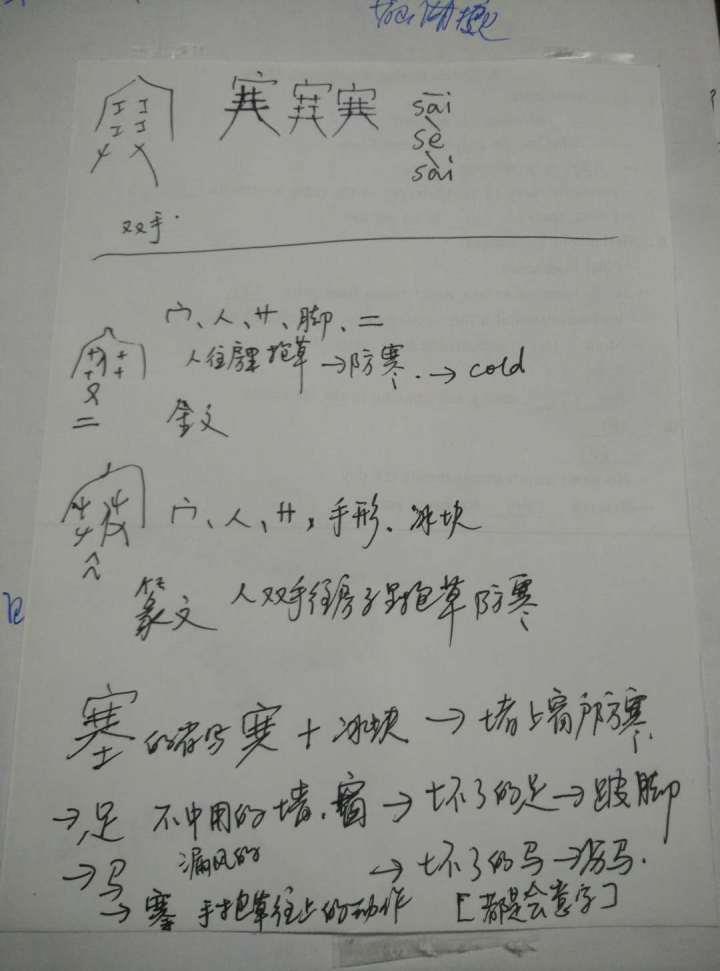 sāi
sè
sài
双手.
宀、人、廾、脚、二
人往房里抱草→防寒.→cold
金文
宀、人、廾、手形、冰块
篆文 人双手往房子里抱草防寒
塞的省写 + 冰块 → 堵上窗户防寒.
→足 不中用的墙、窗 → 坏了的足→跛脚
漏风的
→马 → 坏了的马→
→搴 手抱草往上的动作 [都是会意字]